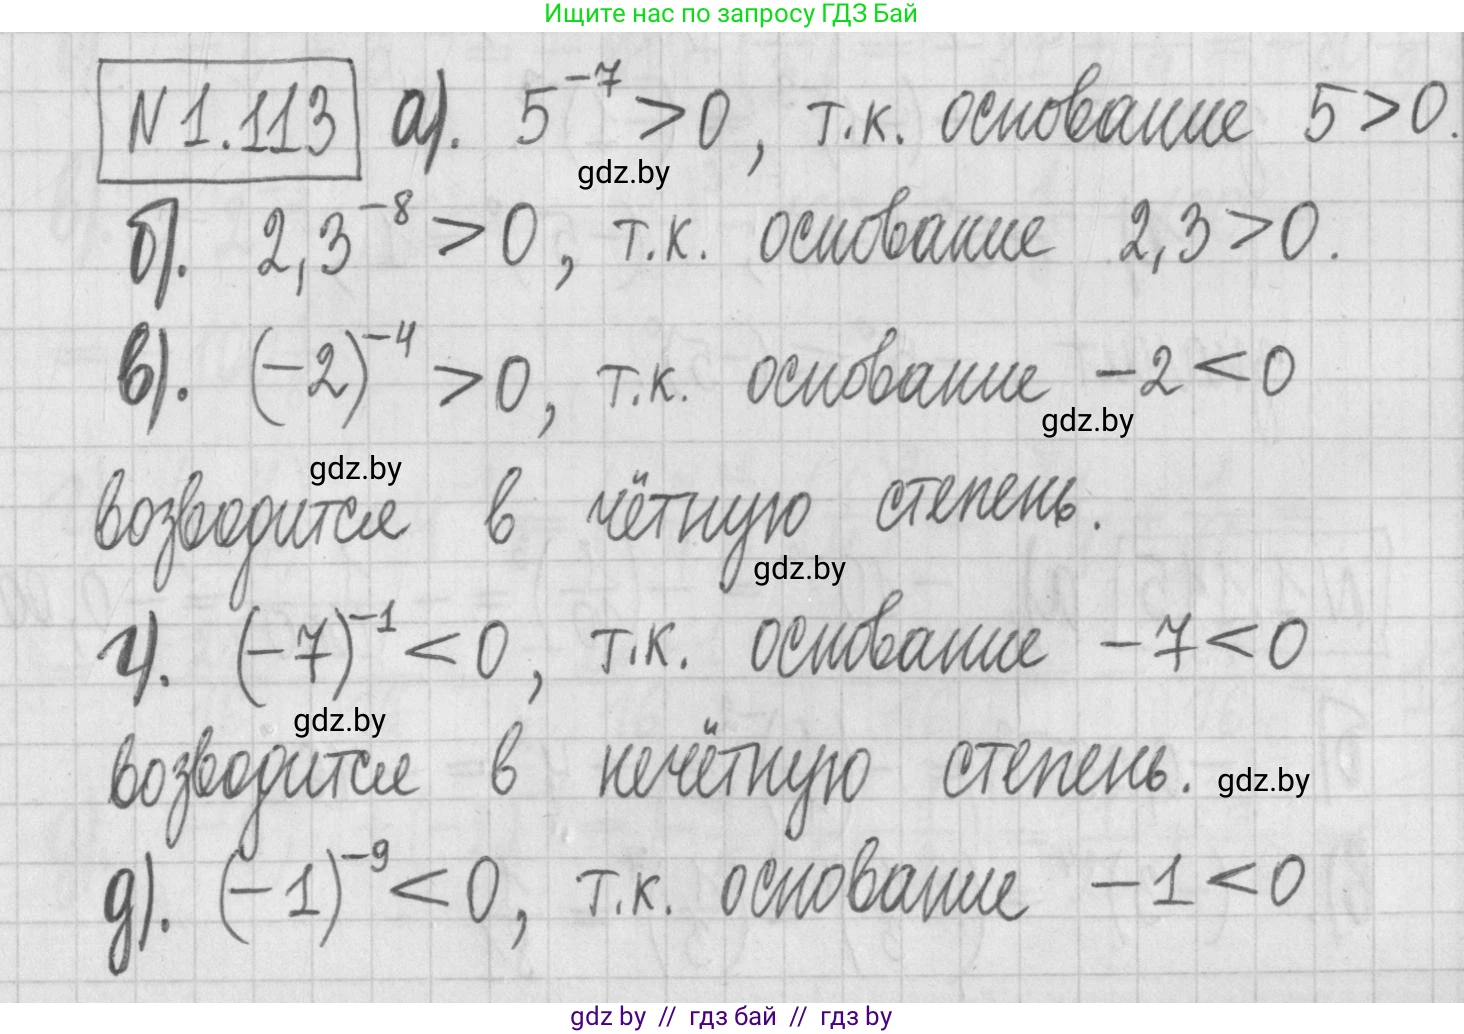 Ищите нас по запросу ГДЗ Бай
N1.113 а). 5⁻⁷ > 0, т.к. основание 5 > 0.
gdz.by
б). 2,3⁻⁸ > 0, т.к. основание 2,3 > 0.
в). (-2)⁻⁴ > 0, т.к. основание -2 < 0
gdz.by
gdz.by
возводится в чётную степень.
gdz.by
г). (-7)⁻¹ < 0, т.к. основание -7 < 0
gdz.by
возводится в нечётную степень.
gdz.by
д). (-1)⁻⁹ < 0, т.к. основание -1 < 0
gdz by // гдз бай // гдз by